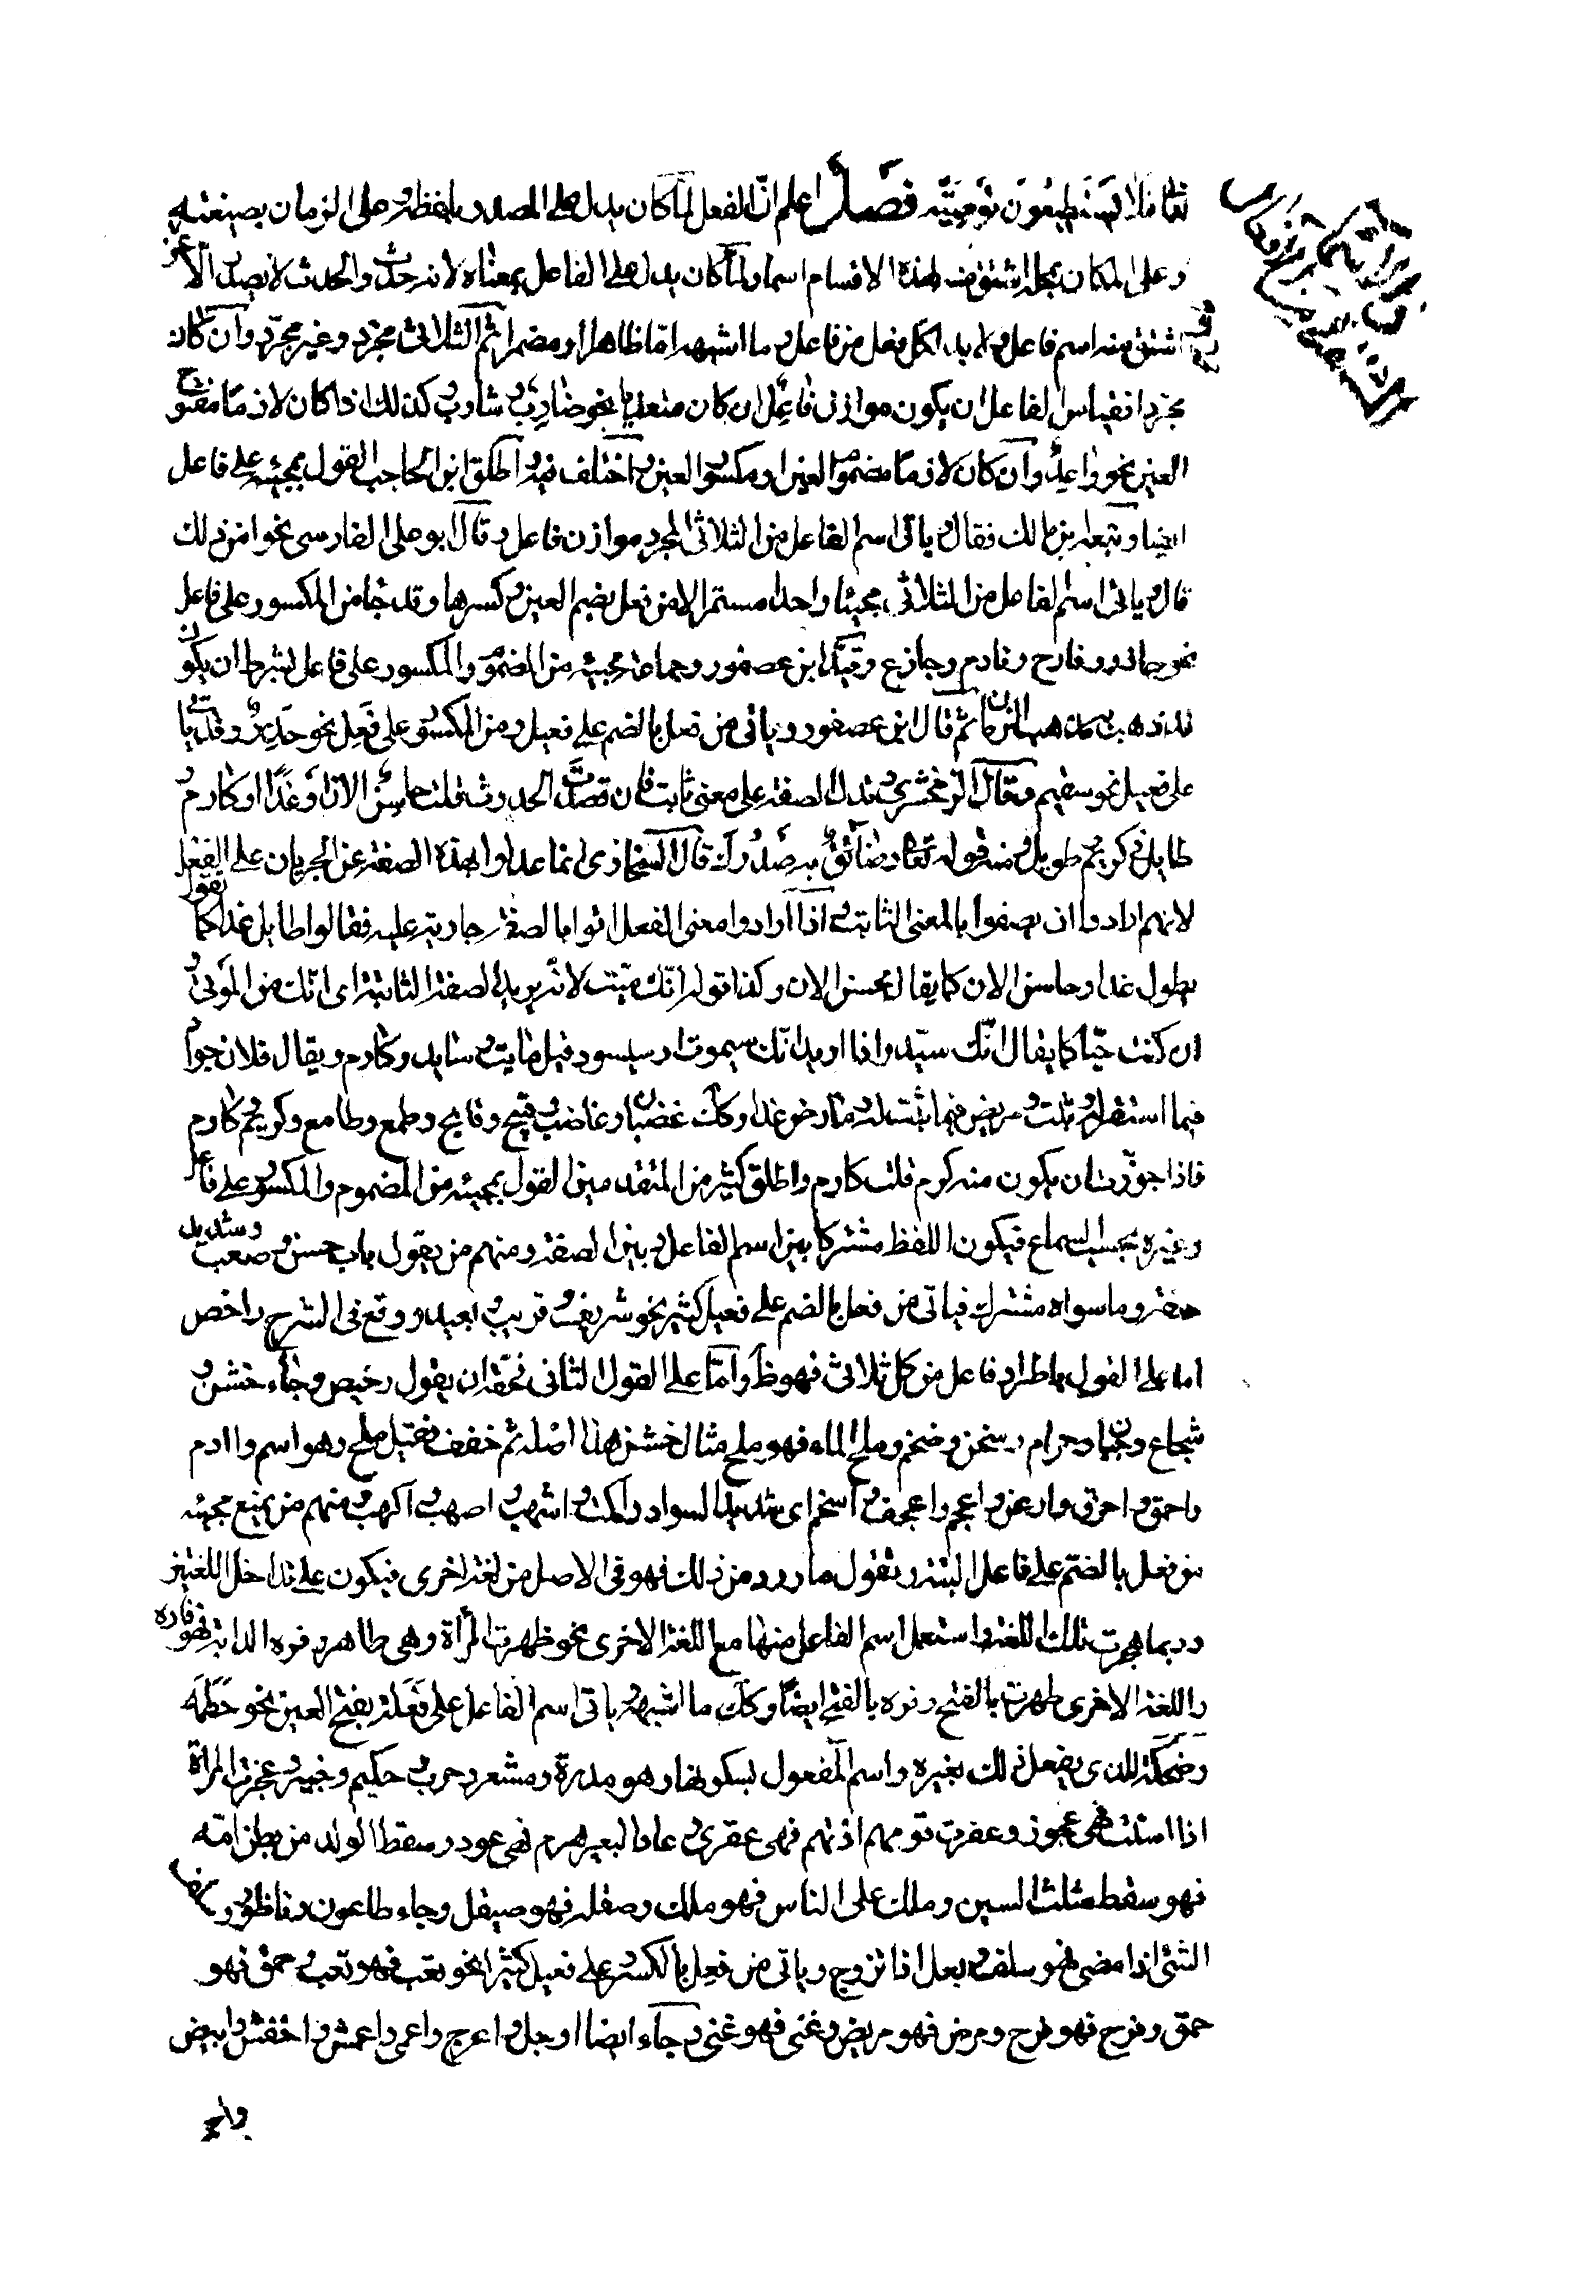 تعا فلا يستطيعون توصية فصل اعلم انّ الفعل لما كان يدل على المصدر بلفظه وعلى الزمان بصيغته
وعلى المكان بمحله اشتق منه لهذه الاقسام اسما ولما كان يدل على الفاعل بمعناه لانه حدث والحدث لا يصدر الا عن
اشتق منه اسم فاعل ولا بد لكل فعل من فاعل او ما اشبهه اما ظاهرا او مضمرا ثم الثلاثى مجرّد وغير مجرّد وان كان
مجردا فقياس الفاعل ان يكون موازن فاعل ان كان متعديا نحو ضارب وشارب وكذلك اذا كان لازما مفتوح
العين نحو واعد وان كان لازما مضموم العين او مكسور العين واختلف فيه واطلق ابن الحاجب القول بمجيئه على فاعل
ايضا وتبعه بن مالك فقال وياتى اسم الفاعل من الثلاثى المجرد موازن فاعل وقال ابو على الفارسى نحوا من ذلك
قال وياتى اسم الفاعل من الثلاثى مجيئا واحدا مستمرا الا من فعل بضم العين وكسرها وقد جاء من المكسور على فاعل
نحو حاذر وفارح ونادم وجازع وقيد ابن عصفور وجماعة مجيئه من المضموم والمكسور على فاعل بشرط ان يكون
قد ذهب به مذهب الزمان ثم قال ابن عصفور وياتى من فعل بالضم على فعيل ومن المكسور على فعل نحو حذر وقد ياتى
على فعيل نحو سقيم وقال الزمخشرى وتدل الصفة على معنى ثابت فان قصدت الحدوث قلت حاسن الان او غدا او كارم و
طايل فى كريم طويل ومنه قوله تعا وضائق به صدرك قال السخاوى انما عدلوا بهذه الصفة عن الجريان على الفعل
لانهم ارادوا ان يصفوا بالمعنى الثابت واذا ارادوا معنى الفعل اتوا بالصفة جارية عليه فقالوا طايل غدا كما يقول
يطول غدا وحاسن الان كما يقال يحسن الان وكذا قوله انك ميّت لانه يريد الصفة الثابتة اى انك من الموتى و
ان كنت حيّا كما يقال انك سيّد واذا اريد انك سيموت او سيسود قيل مايت وسايد وكارم ويقال فلان جواد
فيما استقر له وثبت ومريض فيما ثبت له ومارض غدا وكذلك غضبان وغاضب وقبيح وقابح وطمع وطامع وكريم وكارم
فاذا جوزت ان يكون منه كرم قلت كارم واطلق كثير من المتقدمين القول بمجيئه من المضموم والمكسور على فاعل
وغيره بحسب السماع فيكون اللفظ مشتركا بين اسم الفاعل وبين الصفة ومنهم من يقول باب حسن وصعب وشديد
صفة وما سواه مشترك فياتى من فعل بالضم على فعيل كثير نحو شريف وقريب وبعيد ووقع فى الشرح راخص
اما على القول باطراد فاعل من كل ثلاثى فهو ظ واما على القول الثانى فحقه ان يقول رخيص وجاء خشن و
شجاع وجبان وحرام وسخن وضخم وملح الماء فهو ملح مثال خشن هذا اصله ثم خفف فقيل ملح وهو اسم وادم
واحمق واخرق وارعن واعجم واعجف واسخم اى شديد السواد واكمت واشهب واصهب واكهب ومنهم من يمنع مجيئه
من فعل بالضم على فاعل البتة ويقول ما ورد من ذلك فهو فى الاصل من لغة اخرى فيكون على تداخل اللغتين
وربما هجرت تلك اللغة واستعمل اسم الفاعل منها مع اللغة الاخرى نحو طهرت المرأة وهى طاهر وفره الدابة فهو فاره
واللغة الاخرى طهرت بالفتح وفره بالفتح ايضا وكذلك ما اشبهه وياتى اسم الفاعل على فعلة بفتح العين نحو حطمه
وضحكة للذى يفعل ذلك بغيره واسم المفعول بسكونها وهو مذرة ومشعر وحرب وحكيم وخبير وعجزت المرأة
اذا اسنّت فهى عجوز وعقرت قومهم اذتهم فهى عقرى وعاد البعير هرم فهى عود وسقط الولد من بطن امه
فهو سقط مثلث السين وملك على الناس فهو ملك وصقله فهو صيقل وجاء طاعون وناظور وسلف
الشئ اذا مضى فهو سلف وبعل اذا تزوج وياتى من فعل بالكسر على فعيل كثيرا نحو تعب فهو تعب وحمق فهو
حمق وفرح فهو فرح ومرض فهو مريض وغنى فهو غنى وجاء ايضا اوجل واعرج واعمى واعمش واخفش وابيض
واحمر